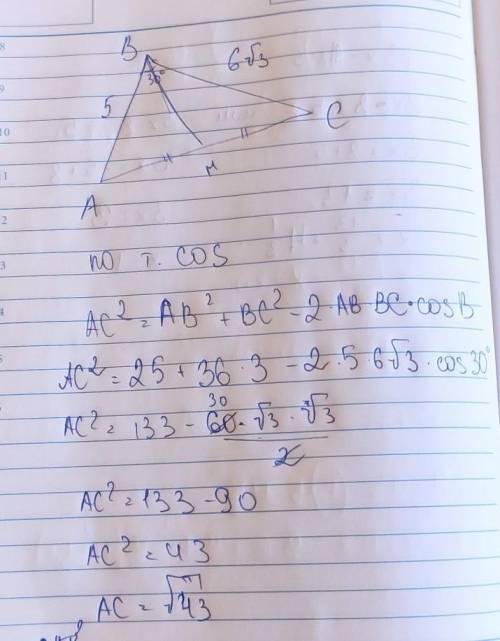 B
6√3
30°
5
C
M
A
по т. cos
AC² = AB² + BC² - 2 · AB · BC · cos B
AC² = 25 + 36 · 3 - 2 · 5 · 6√3 · cos 30°
30
AC² = 133 - 60 · √3 · √3
2
AC² = 133 - 90
AC² = 43
AC = √43